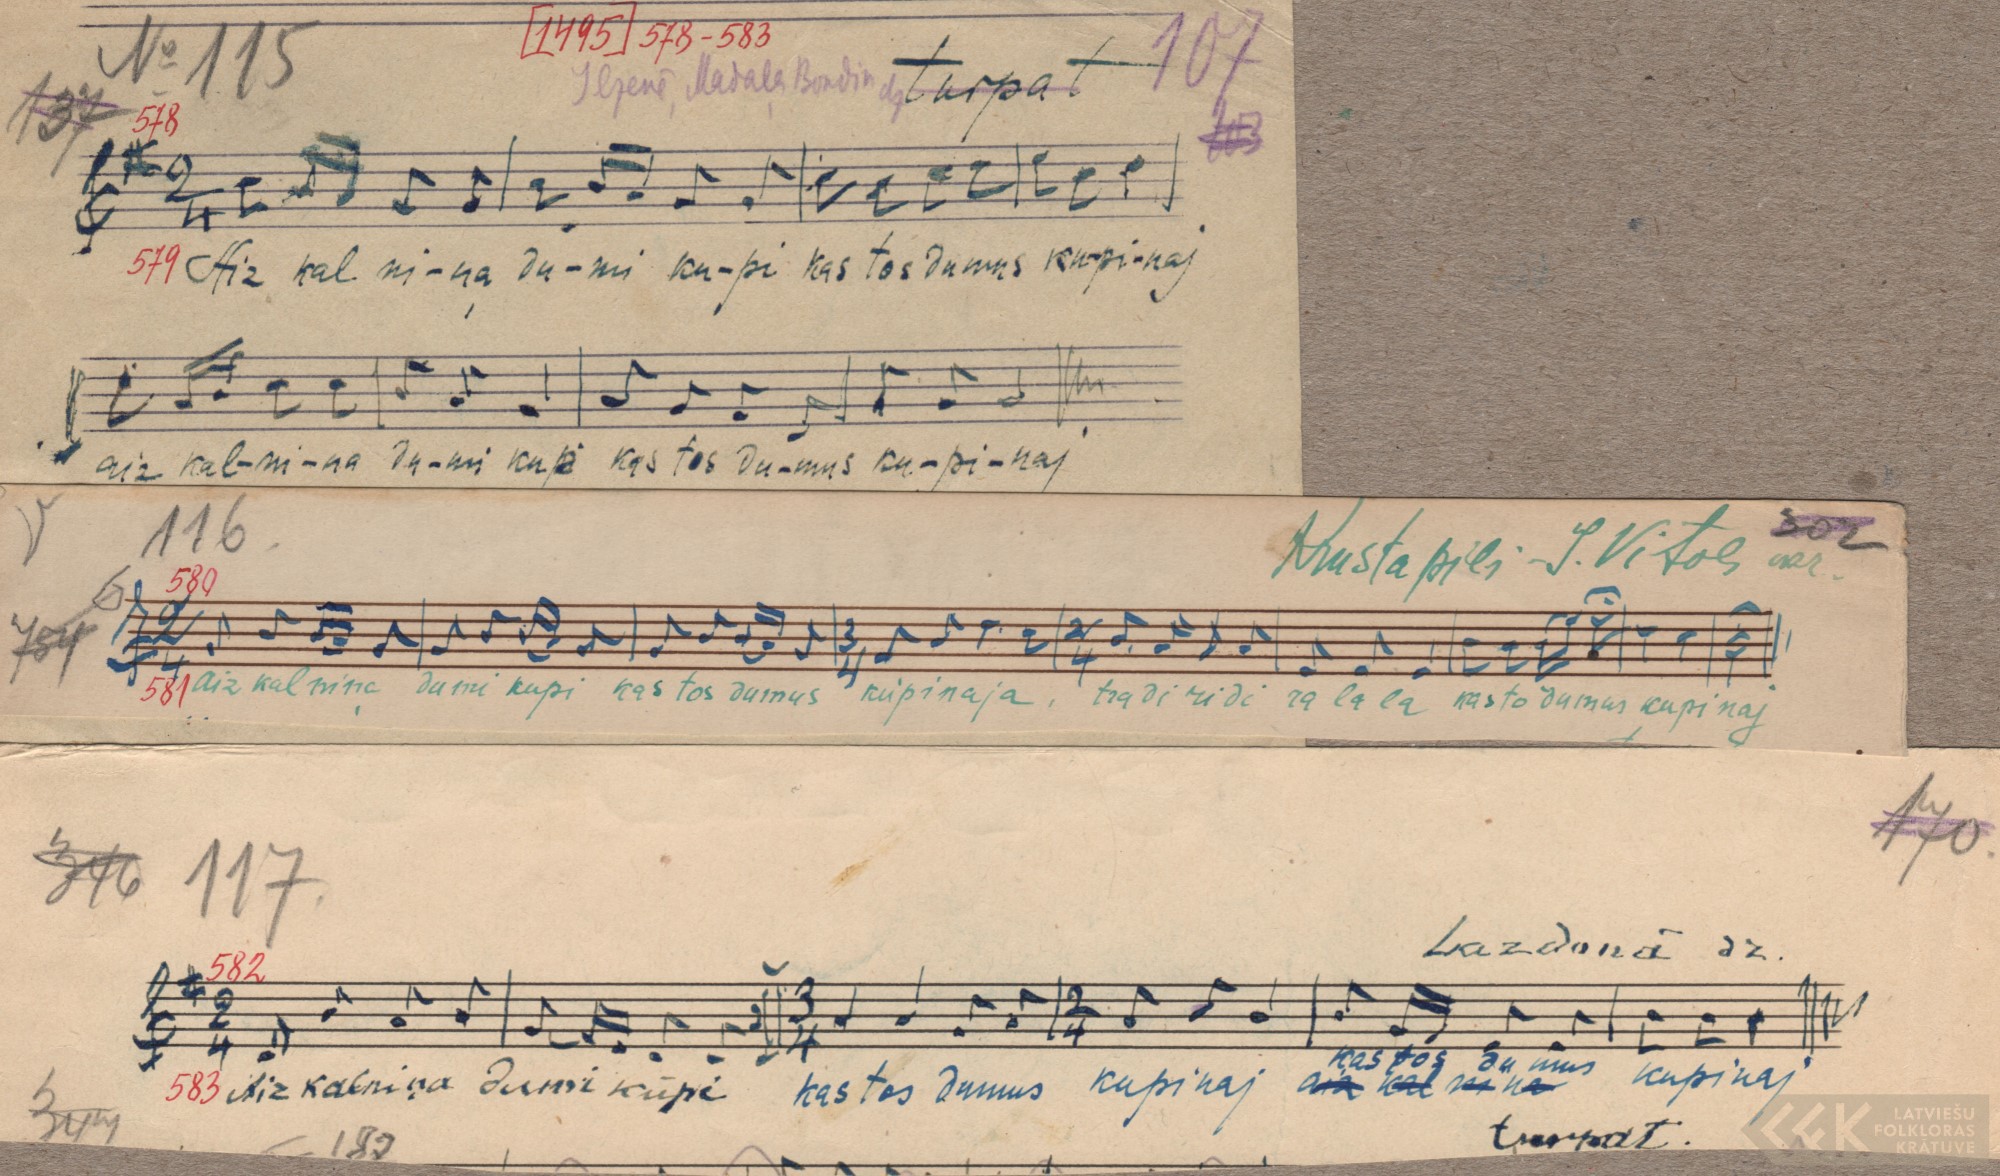 № 115
[1495] 578-583
107
turpat
137
578
103
2/4
579 Aiz kal ni-ņa du-mi ku-pi kas tos dumus ku-pi-naj
aiz kal-ni-ņa du-mi kupi kas tos du-mus ku-pi-naj
116.
Krustapilī - J. Vitols
302
580
2/4 3/4 2/4
581 aiz kalniņa dumi kupi kas tos dumus kupinaja, tradi ridi ra la la kasto dumus kupinaj
170.
346 117.
Lazdonā dz.
582
2/4 3/4 2/4
kas tos du mus
583 Aiz kalniņa dumi kūpi kas tos dumus kupinaj aiz kal ni na kupinaj
344
turpat.
LATVIEŠU
FOLKLORAS
KRĀTUVE